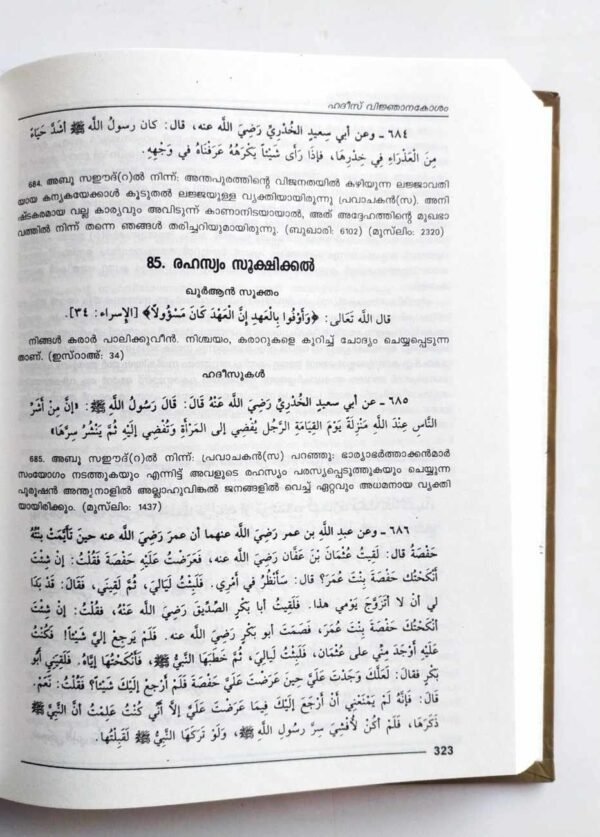 ഹദീസ് വിജ്ഞാനകോശം
٦٨٤ ـ وعن أبي سعيدٍ الخُدْرِيِّ رَضِيَ اللَّه عنه، قال: كان رسولُ اللَّه ﷺ أَشَدَّ حَيَاءً
مِنَ العَذْرَاءِ في خِدْرِهَا، فَإِذَا رَأَى شَيْئاً يَكْرَهُهُ عَرَفْنَاهُ في وَجْهِهِ.
684. അബൂ സഈദ്(റ)ൽ നിന്ന്: അന്തപുരത്തിന്റെ വിജനതയിൽ കഴിയുന്ന ലജ്ജാവതി
യായ കന്യകയേക്കാൾ കൂടുതൽ ലജ്ജയുള്ള വ്യക്തിയായിരുന്നു പ്രവാചകൻ(സ). അനി
ഷ്ടകരമായ വല്ല കാര്യവും അവിടുന്ന് കാണാനിടയായാൽ, അത് അദ്ദേഹത്തിന്റെ മുഖഭാ
വത്തിൽ നിന്ന് തന്നെ ഞങ്ങൾ തരിച്ചറിയുമായിരുന്നു. (ബുഖാരി: 6102) (മുസ്‌ലിം: 2320)
85. രഹസ്യം സൂക്ഷിക്കൽ
ഖുർആൻ സൂക്തം
قال اللَّه تَعَالى: ﴿وَأَوْفُوا بِالْعَهدِ إِنَّ الْعَهْدَ كَانَ مَسْؤُولاً﴾ [الإسراء: ٣٤].
നിങ്ങൾ കരാർ പാലിക്കുവീൻ. നിശ്ചയം, കരാറുകളെ കുറിച്ച് ചോദ്യം ചെയ്യപ്പെടുന്ന
താണ്. (ഇസ്റാഅ്: 34)
ഹദീസുകൾ
٦٨٥ ـ عن أبي سعيدٍ الخُدْرِيِّ رَضِيَ اللَّه عَنْهُ قالَ: قَالَ رَسُولُ اللَّهِ ﷺ: «إِنَّ مِنْ أَشَرِّ
النَّاسِ عِنْدَ اللَّهِ مَنْزِلَةً يَوْمَ القِيَامَةِ الرَّجُلُ يُفْضِي إِلى المَرْأَةِ وَتُفْضِي إِلَيْهِ ثُمَّ يَنْشُرُ سِرَّهَا»
685. അബൂ സഈദ്(റ)ൽ നിന്ന്: പ്രവാചകൻ(സ) പറഞ്ഞു: ഭാര്യാഭർത്താക്കൻമാർ
സംയോഗം നടത്തുകയും എന്നിട്ട് അവളുടെ രഹസ്യം പരസ്യപ്പെടുത്തുകയും ചെയ്യുന്ന
പുരുഷൻ അന്ത്യനാളിൽ അല്ലാഹുവിങ്കൽ ജനങ്ങളിൽ വെച്ച് ഏറ്റവും അധമനായ വ്യക്തി
യായിരിക്കും. (മുസ്‌ലിം: 1437)
٦٨٦ ـ وعن عبدِ اللَّه بن عمر رَضِيَ اللَّه عنهما أن عمرَ رَضِيَ اللَّه عنه حينَ تَأَيَّمَتْ بِنْتُهُ
حَفْصَةُ قال: لَقِيتُ عُثْمَانَ بْنَ عَفَّان رَضِيَ اللَّه عنه، فَعَرَضْتُ عَلَيْهِ حَفْصَةَ فَقُلْتُ: إنْ شِئْتَ
أَنْكَحْتُك حَفْصَةَ بِنْتَ عُمَرَ؟ قال: سَأَنْظُرُ في أَمْرِي. فَلَبِثْتُ لَيَالِيَ، ثُمَّ لَقِيَنِي، فَقَالَ: قَدْ بَدَا
لي أَنْ لا أَتَزَوَّجَ يَوْمِي هذا. فَلَقِيتُ أَبا بَكْرٍ الصِّدِّيقَ رَضِيَ اللَّه عَنْهُ، فقُلْتُ: إنْ شِئْتَ
أَنْكَحْتُكَ حَفْصَةَ بِنْتَ عُمَرَ، فَصَمَتَ أبو بَكْرٍ رَضِيَ اللَّه عنه. فَلَمْ يَرجِعْ إِلَيَّ شَيْئاً! فَكُنْتُ
عَلَيْهِ أَوْجَدَ مِنِّي على عُثْمَان، فَلَبِثْتُ لَيَالِيَ، ثُمَّ خَطَبَهَا النَّبِيُّ ﷺ، فَأَنْكَحْتُهَا إِيَّاهُ. فَلَقِيَنِي أَبُو
بَكْرٍ فقالَ: لَعَلَّكَ وَجَدْتَ عَلَيَّ حِينَ عَرَضْتَ عَلَيَّ حَفْصَةَ فَلَمْ أَرْجِعْ إِلَيْكَ شَيْئاً؟ فقُلْتُ: نَعَمْ.
قالَ: فَإِنَّهُ لَمْ يَمْنَعْنِي أَنْ أَرْجِعَ إِلَيْكَ فِيمَا عَرَضْتَ عَلَيَّ إلاَّ أَنِّي كُنْتُ عَلِمْتُ أَنَّ النَّبِيَّ ﷺ
ذَكَرَهَا، فَلَمْ أَكُنْ لأُفْشِيَ سِرَّ رسولِ اللَّهِ ﷺ، وَلَوْ تَرَكَهَا النَّبِيُّ ﷺ لَقَبِلْتُهَا.
323